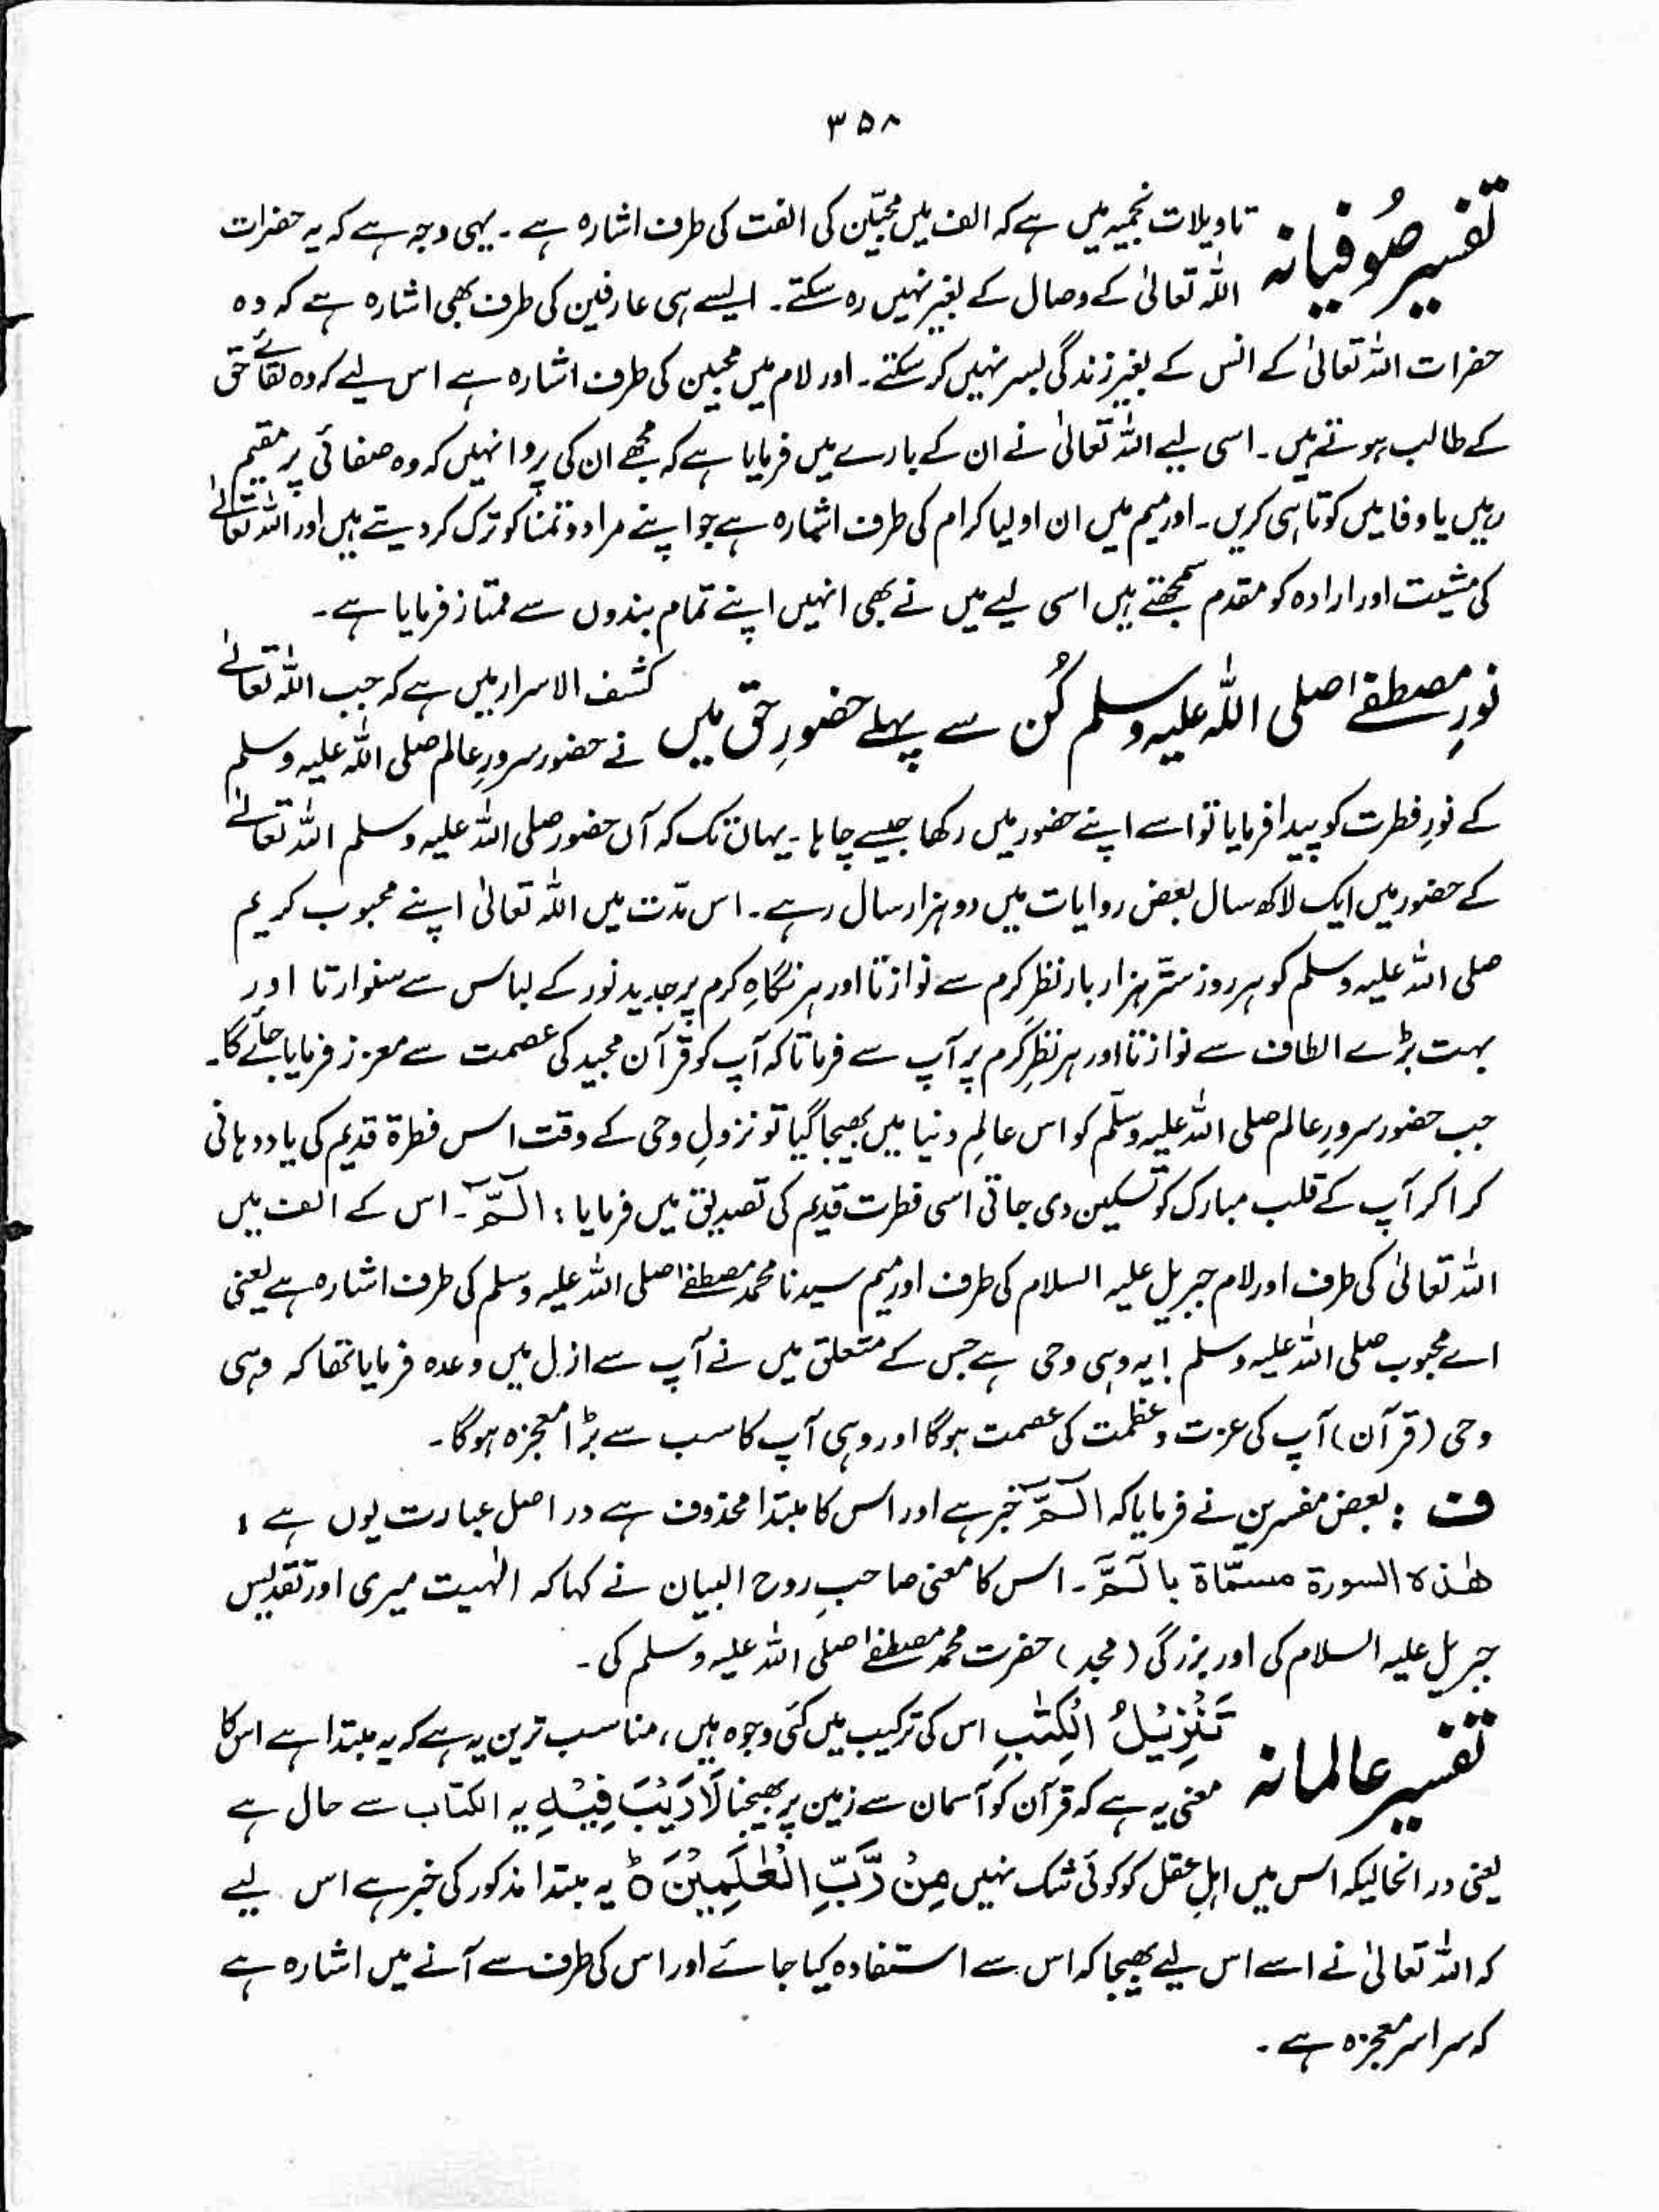 ۳۵۸
تفسیر صُوفیانہ تاویلات نجمیہ میں ہے کہ الف میں محبّین کی الفت کی طرف اشارہ ہے۔ یہی وجہ ہے کہ یہ حضرات
اللہ تعالیٰ کے وصال کے بغیر نہیں رہ سکتے۔ ایسے ہی عارفین کی طرف بھی اشارہ ہے کہ وہ
حضرات اللہ تعالیٰ کے انس کے بغیر زندگی بسر نہیں کر سکتے۔ اور لام میں محبین کی طرف اشارہ ہے اس لیے کہ وہ لقائے حق
کے طالب ہوتے ہیں۔ اسی لیے اللہ تعالیٰ نے ان کے بارے میں فرمایا ہے کہ مجھے ان کی پروا نہیں کہ وہ صفائی پر مقیم
رہیں یا وفا میں کوتاہی کریں۔ اور میم میں ان اولیا کرام کی طرف اشارہ ہے جو اپنے مراد و تمنا کو ترک کر دیتے ہیں اور اللہ تعالےٰ
کی مشیت اور ارادہ کو مقدم سمجھتے ہیں اسی لیے میں نے بھی انہیں اپنے تمام بندوں سے ممتاز فرمایا ہے۔
نورِ مصطفےٰ صلی اللہ علیہ وسلم کُن سے پہلے حضورِ حق میں کشف الاسرار میں ہے کہ جب اللہ تعالےٰ
نے حضور سرورِ عالم صلی اللہ علیہ وسلم
کے نورِ فطرت کو پیدا فرمایا تو اسے اپنے حضور میں رکھا جیسے چاہا۔ یہاں تک کہ آں حضور صلی اللہ علیہ وسلم اللہ تعالےٰ
کے حضور میں ایک لاکھ سال بعض روایات میں دو ہزار سال رہے۔ اس مدّت میں اللہ تعالیٰ اپنے محبوب کریم
صلی اللہ علیہ وسلم کو ہر روز ستّر ہزار بار نظرِ کرم سے نوازتا اور ہر نگاہِ کرم پر جدید نور کے لباس سے سنوارتا اور
بہت بڑے الطاف سے نوازتا اور ہر نظرِ کرم پر آپ سے فرماتا کہ آپ کو قرآن مجید کی عصمت سے معزز فرمایا جائے گا۔
جب حضور سرورِ عالم صلی اللہ علیہ وسلّم کو اس عالمِ دنیا میں بھیجا گیا تو نزولِ وحی کے وقت اس فطرۃ قدیم کی یاد دہانی
کرا کر آپ کے قلب مبارک کو تسکین دی جاتی اسی فطرت قدیم کی تصدیق میں فرمایا : الٓمّٓ۔ اس کے الف میں
اللہ تعالیٰ کی طرف اور لام جبریل علیہ السلام کی طرف اور میم سیدنا محمد مصطفےٰ صلی اللہ علیہ وسلم کی طرف اشارہ ہے یعنی
اے محبوب صلی اللہ علیہ وسلم ! یہ وہی وحی ہے جس کے متعلق میں نے آپ سے ازل میں وعدہ فرمایا تھا کہ وہی
وحی (قرآن) آپ کی عزت و عظمت کی عصمت ہوگا اور وہی آپ کا سب سے بڑا معجزہ ہوگا۔
ف : بعض مفسرین نے فرمایا کہ الٓمّٓ خبر ہے اور اس کا مبتدا محذوف ہے در اصل عبارت یوں ہے :
ھٰذہ السورۃ مسمّاۃ بالٓمّٓ۔ اس کا معنی صاحبِ روح البیان نے کہا کہ الٰہیت میری اور تقدیس
جبریل علیہ السلام کی اور بزرگی (مجد) حضرت محمد مصطفےٰ صلی اللہ علیہ وسلم کی۔
تفسیر عالمانہ تَنْزِیْلُ الْکِتٰبِ اس کی ترکیب میں کئی وجوہ ہیں، مناسب ترین یہ ہے کہ یہ مبتدا ہے اس کا
معنی یہ ہے کہ قرآن کو آسمان سے زمین پر بھیجنا لَارَیْبَ فِیْہِ یہ الکتاب سے حال ہے
یعنی در انحالیکہ اس میں اہلِ عقل کو کوئی شک نہیں مِنْ رَّبِّ الْعٰلَمِیْنَ ۝ یہ مبتدا مذکور کی خبر ہے اس لیے
کہ اللہ تعالیٰ نے اسے اس لیے بھیجا کہ اس سے استفادہ کیا جائے اور اس کی طرف سے آنے میں اشارہ ہے
کہ سراسر معجزہ ہے۔